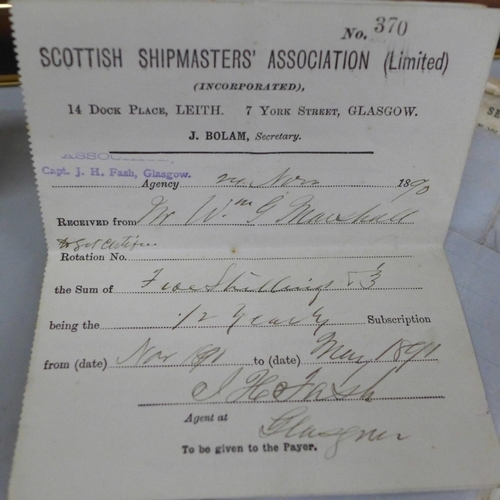 No. 370
SCOTTISH SHIPMASTERS' ASSOCIATION (Limited)
(INCORPORATED),
14 DOCK PLACE, LEITH. 7 YORK STREET, GLASGOW.
J. BOLAM, Secretary.
Capt. J. H. Fash, Glasgow.
Agency Nov 1890
RECEIVED from Mr Wm G Marshall
Rotation No.
the Sum of Five Shillings &
being the 1/2 Yearly Subscription
from (date) Nov to (date) May 1891
J H Fash
Agent at Glasgow
To be given to the Payer.